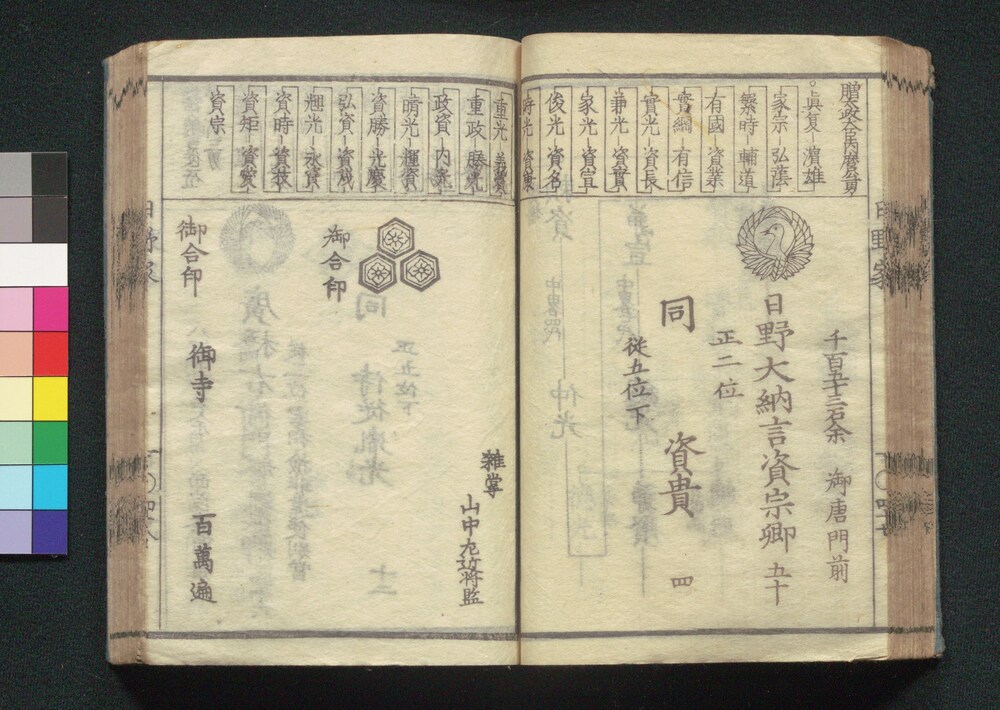 日野家
贈政大臣内麿公男
真夏 濱雄
家宗 弘蔭
繁時 輔道
有國 資業
實綱 有信
實光 資長
兼光 資實
家光 資宣
俊光 資名
時光 資康
重光 義資
重政 勝光
政資 内光
晴光 輝資
資勝 光慶
弘資 資茂
輝光 永資
資時 資枝
資矩 資愛
資宗
千百五十三石余 御唐門前
日野大納言資宗卿 五十
正二位
同 資貴 四
従五位下
雑掌
山中左近将監
御合印
御合印
御寺 百萬遍
日野家